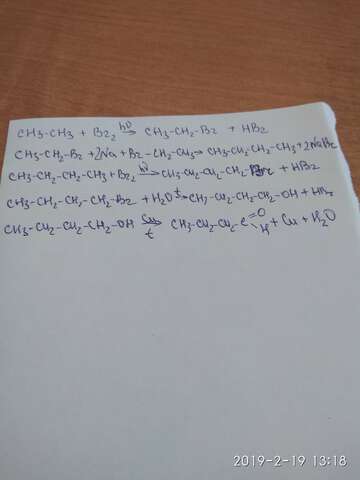 CH3-CH3 + Br2 hν→ CH3-CH2-Br + HBr
CH3-CH2-Br + 2Na + Br-CH2-CH3 → CH3-CH2-CH2-CH3 + 2NaBr
CH3-CH2-CH2-CH3 + Br2 hν→ CH3-CH2-CH2-CH2-Br + HBr
CH3-CH2-CH2-CH2-Br + H2O t→ CH3-CH2-CH2-CH2-OH + HBr
CH3-CH2-CH2-CH2-OH CuO→ t CH3-CH2-CH2-C=O -H + Cu + H2O
2019-2-19 13:18